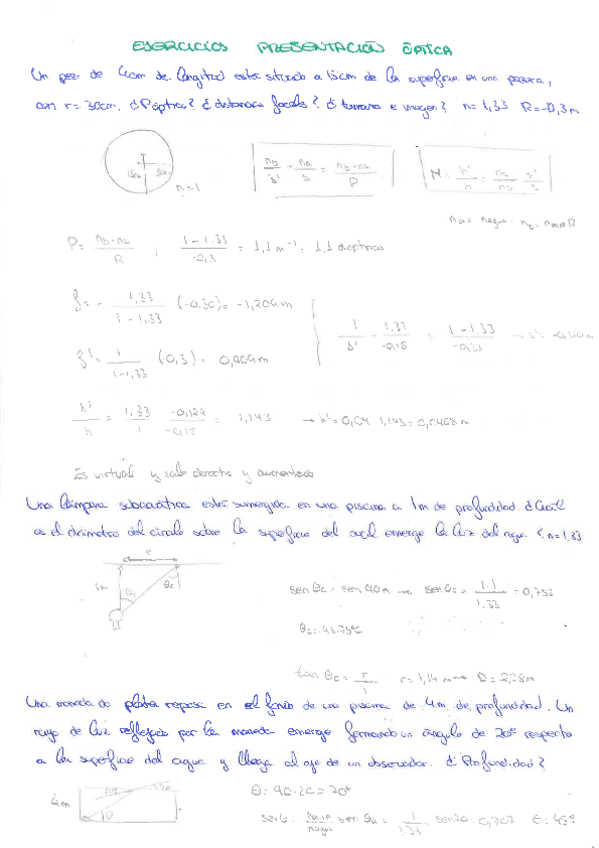 EJERCICIOS PRESENTACIÓN ÓPTICA
Un pez de 4cm de longitud está situado a 15cm de la superficie en una pecera,
con r=30cm. ¿P óptica? ¿distancias focales? ¿tamaño e imagen? n=1,33 R=-0,3m
15cm 30cm n=1
nb/s' - na/s = nb-na/R
M = h'/h = na/nb s'/s
na = nagua
P = nb-na/R , 1-1.33/-0,3 = 1,1 m⁻¹ = 1,1 dioptrías
f = - 1,33/1-1,33 (-0.30) = -1,209m
f' = 1/1-1,33 (0,3) = 0,909m
1/s' - 1,33/-0,15 = 1-1,33
h'/h = 1,33/1 -0,129/-0,15 = 1,143 → h' = 0,04 1,143 =
Es virtual y sale derecha y aumentada
Una lámpara subacuática está sumergida en una piscina a 1m de profundidad. ¿Cuál
es el diámetro del círculo sobre la superficie del cual emerge la luz del agua? n=1,33
r
1m θc θc
sen θc = sen 90 n → sen θc = 1.1/1,33 = 0,752
θc = 48.75°C
tan θc = r/1 r = 1,14 m → D = 2,28m
Una moneda de plata reposa en el fondo de una piscina de 4m de profundidad. Un
rayo de luz reflejado por la moneda emerge formando un ángulo de 20° respecto
a la superficie del agua y llega al ojo de un observador. ¿Profundidad?
4m
θ = 90-20 = 70°
naire/nagua = 1/1.33 sen70 = 0,707 = 45°